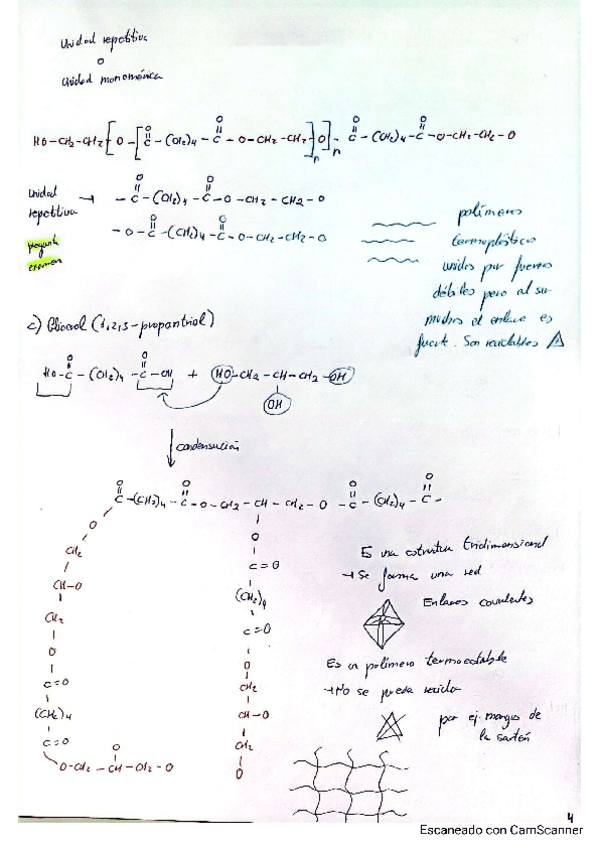 Unidad repetitiva
o
Unidad monomérica
O O O O
HO-CH2-CH2[O-[C-(CH2)4-C-O-CH2-CH2]O]n-C-(CH2)4-C-O-CH2-CH2-O
Unidad repetitiva → -C-(CH2)4-C-O-CH2-CH2-O
-O-C-(CH2)4-C-O-CH2-CH2-O
pregunta
examen
polímeros
termoplásticos
unidos por fuerzas
débiles pero al su-
el enlace es
fuerte. Son reciclables
c) Glicerol (1,2,3-propantriol)
HO-C-(CH2)4-C-OH + HO-CH2-CH-CH2-OH
OH
condensación
C-(CH2)4-C-O-CH2-CH-CH2-O-C-(CH2)4-C-
O
CH2
CH-O
CH2
O
C=O
(CH2)4
C=O
O-CH2-CH-CH2-O
O
C=O
(CH2)4
C=O
O
CH2
CH-O
CH2
O
Es una estructura tridimensional
→ Se forma una red
Enlaces covalentes
Es un polímero termoestable
→ No se puede reciclar
por ej. mangos de
la sartén
4
Escaneado con CamScanner